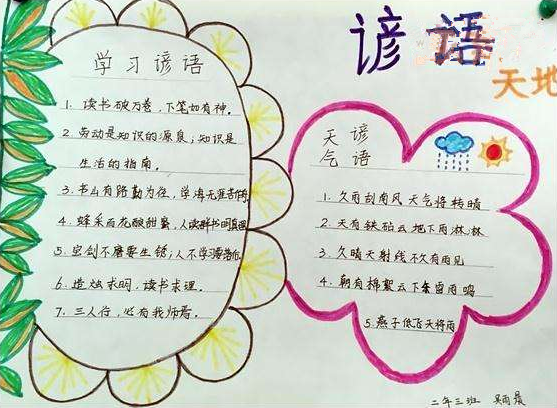 谚语
天地
学习谚语
1. 读书破万卷，下笔如有神。
2. 劳动是知识的源泉；知识是
生活的指南。
3. 书山有路勤为径，学海无涯苦作
4. 蜂采百花酿甜蜜，人读群书明真理
5. 宝剑不磨要生锈；人不学习要落伍
6. 造烛求明，读书求理。
7. 三人行，必有我师焉。
天气
谚语
1. 久雨刮南风天气将转晴
2. 天有铁砧云地下雨淋淋
3. 久晴天射线不久有雨见
4. 朝有棉絮云下午雷雨鸣
5. 燕子低飞天将雨
二年三班 吴雨晨